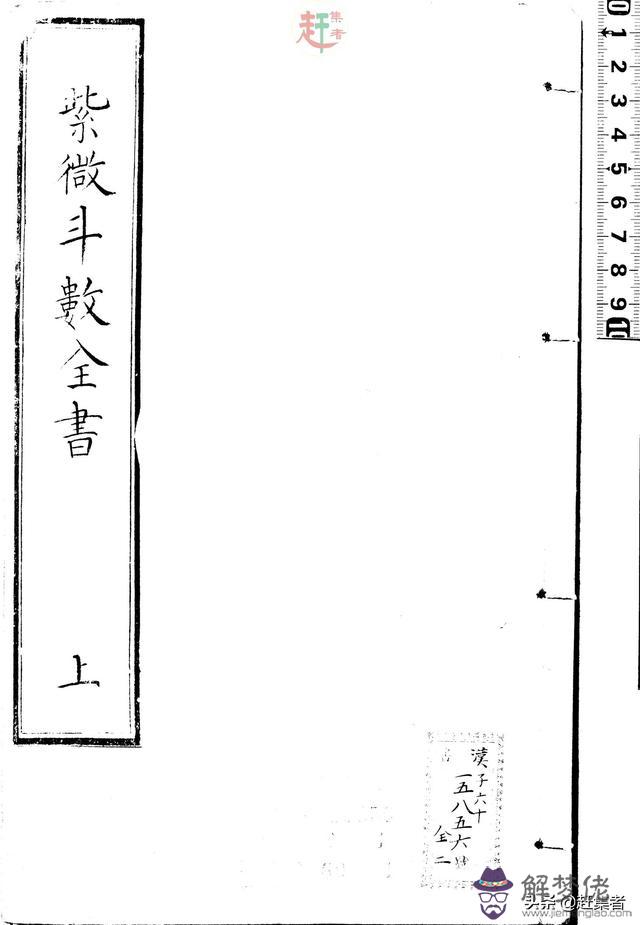 紫微斗數全書
上
赶集者
漢子六十
一五八五六號
全二
0 1 2 3 4 5 6 7 8 9 10
解梦佬
头条 @赶集者
www.jiemonglao.com